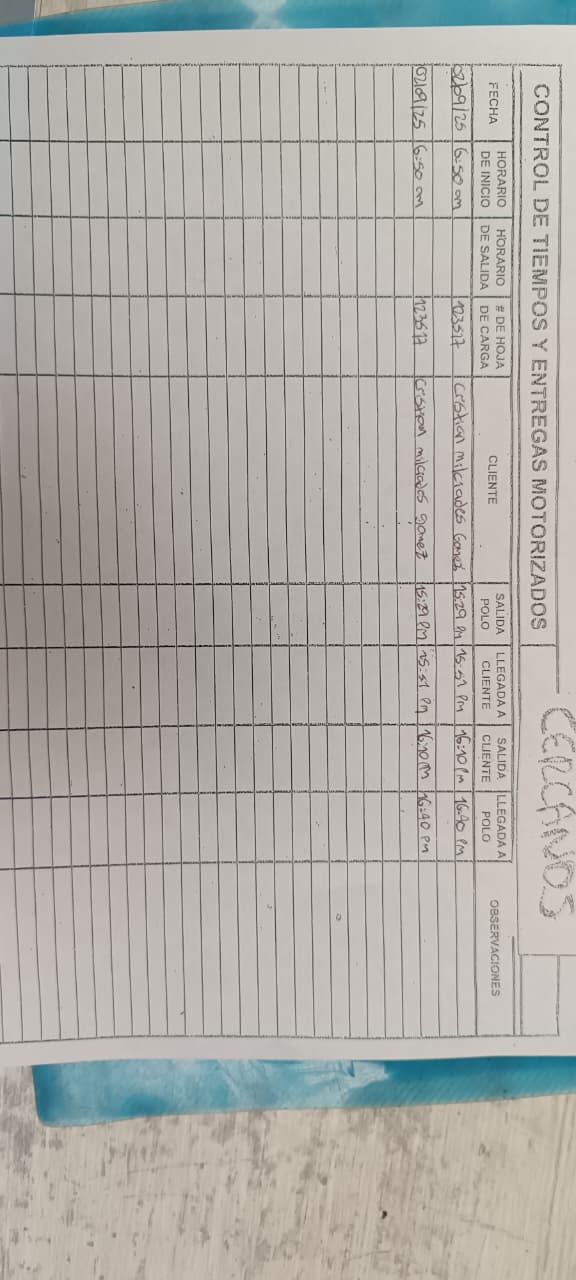 CONTROL DE TIEMPOS Y ENTREGAS MOTORIZADOS
CERCANOS
FECHA HORARIO DE INICIO HORARIO DE SALIDA # DE HOJA DE CARGA CLIENTE SALIDA POLO LLEGADA A CLIENTE SALIDA CLIENTE LLEGADA A POLO OBSERVACIONES
02/09/25 6:50 am 123517 Cristian milciades Gomez 15:29 Pm 15:51 Pm 16:10 Pm 16:40 Pm
02/09/25 6:50 am 123517 Cristian milciades gomez 15:29 PM 15:51 Pm 16:10 PM 16:40 PM